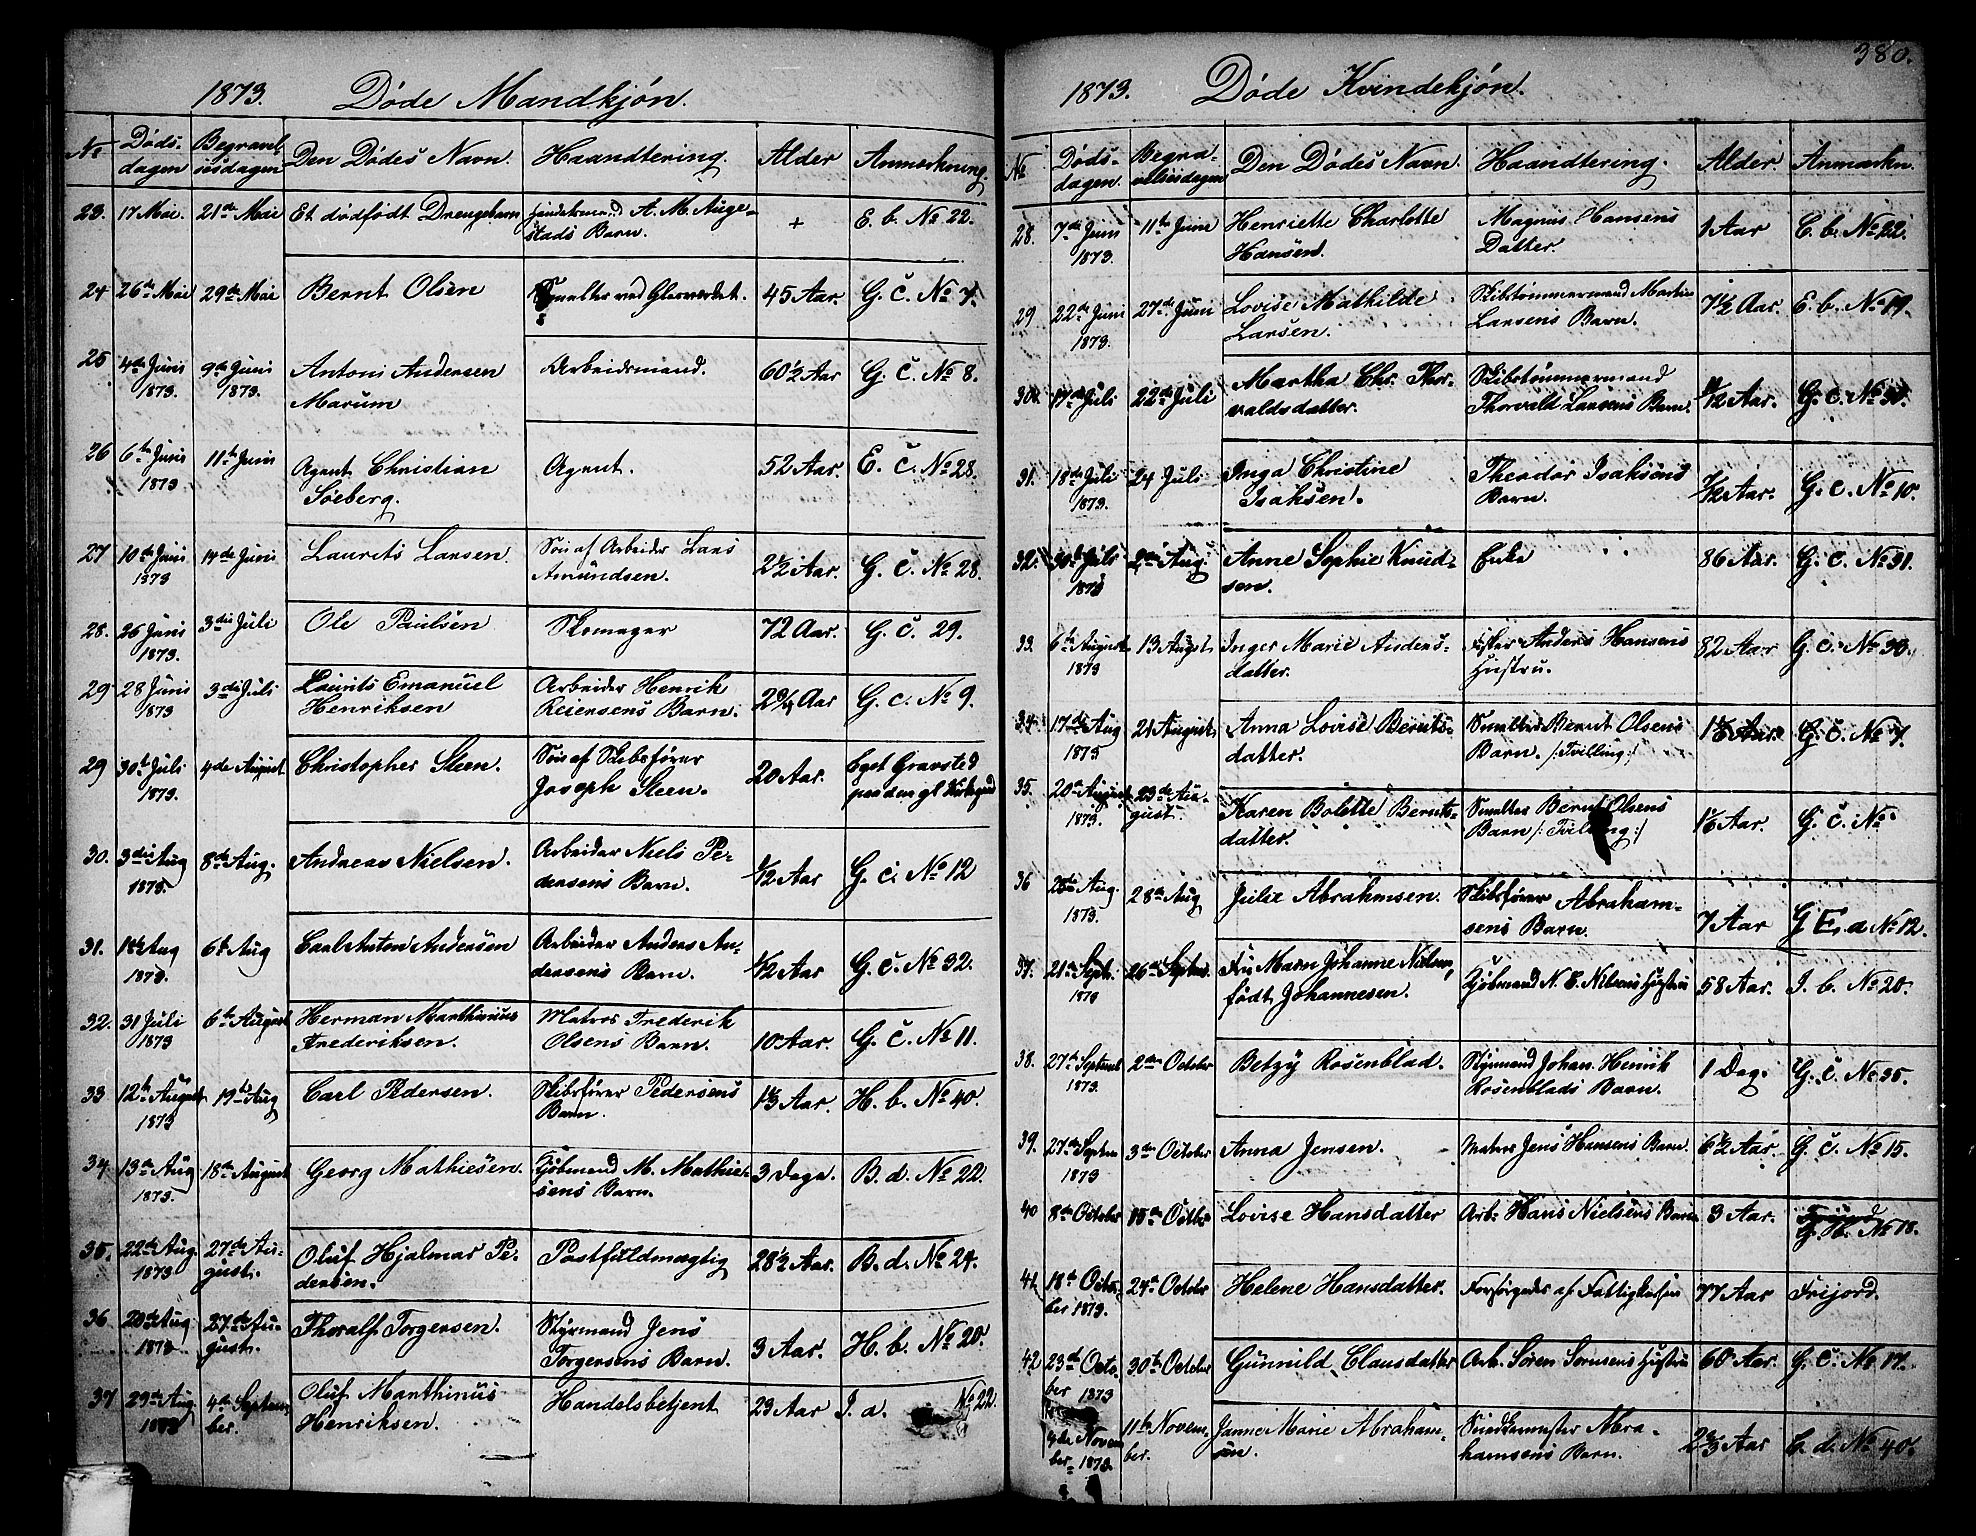 380.
1873. Døde Mandkjøn.
No Døds-dagen Begravelsesdagen Den Dødes Navn. Haandtering. Alder Anmærkning.
23. 17 Mai. 21de Mai Et dødfødt Drengebarn A. M. Auge-stads Barn. + E. b. No 22.
24 26de Mai 29de Mai Bernt Olsen Smelter ved Glasværket. 45 Aar. G. c. No 7.
25 4de Juni 1873. 9de Juni 1873. Antoni Andersen Marum Arbeidsmand. 60½ Aar G. c. No 8.
26 6te Juni 1873 11te Juni Agent Christian Søeberg. Agent. 52 Aar. E. c. No 28.
27 10de Juni 1873 14de Juni Laurits Larsen. Søn af Arbeider Lars Amundsen. 2½ Aar. G. c. No 28.
28. 26 Juni 1873. 3die Juli Ole Paulsen Skomager 72 Aar. G. c. 29.
29 28 Juni 1873 3die Juli Laurits Emanuel Henriksen Arbeider Henrik Reiersens Barn. 2¾ Aar G. c. No 9.
29 30te Juli 1873. 4de August Christopher Steen. Søn af Skibsfører Joseph Steen. 20 Aar. Eget Gravsted paa den gl Kirkegaard
30. 3die Aug 1873. 8de Aug. Andreas Nielsen. Arbeider Niels Pe-dersens Barn. /12 Aar G. c. No 12
31. 1ste Aug 1873. 6te Aug Carl Anton Andersen Arbeider Anders An-dersens Barn. /12 Aar G. c. No 32.
32. 31 Juli 1873 6te August Herman Marthinius Frederiksen. Matros Frederik Olsens Barn. 10 Aar. G. c. No 11.
33 12te August 1873 19de Aug Carl Pedersen. Skibsfører Pedersens Barn. 1⅓ Aar. H. b. No 40.
34. 13de Aug 1873. 18de August Georg Mathiesen. Kjøbmand M. Mathie-sens Barn. 3 Dage. B. d. No 22.
35. 22de Aug 1873 27de Au-gust. Oluf Hjalmar Pe-dersen. Postfuldmægtig 28½ Aar. B. d. No 24.
36 20de Aug 1873 27de Au-gust. Thoralf Torgersen. Styrmand Jens Torgersens Barn. 3 Aar. H. b. No 20.
37 29de Aug. 1873 4de Septem-ber. Oluf Marthinius Henriksen. Handelsbetjent 23 Aar I. a. No 22.
1873. Døde Kvindekjøn.
No Døds-dagen. Begra-velsesdagen Den Dødes Navn. Haandtering. Alder. Anmærkn.
28. 7de Juni 1873. 11te Juni Henriette Charlotte Hansen. Magnus Hansens Datter. 1 Aar C. b. No 22.
29 22de Juni 1873. 27de Juni Lovise Mathilde Larsen. Skibstømmermand Martin Larsens Barn. 7½ Aar. E. b. No 19.
30. 17de Juli 22de Juli Martha Chr. Thor-valdsdatter. Skibstømmermand Thorvald Larsens Barn. /12 Aar. G. c. No 30.
31. 18de Juli 1873. 24 Juli Inga Christine Isaksen. Theodor Isaksens Barn. /12 Aar. G. c. No 10.
32. 30te Juli 1873 2den Aug. Anne Sophie Knud-sen. Enke 86 Aar. G. c. No 31.
33. 6te August 1873 13 August Inger Marie Anders-datter. Fisker Anders Hansens Hustru. 82 Aar G. c. No 30.
34. 17de Aug 1873 21 August Anna Lovise Bernts-datter. Smelter Bernt Olsens Barn. /: Tvilling :/ 1⅙ Aar G. c. No 7.
35. 20de August 1873. 23de Au-gust. Karen Bolette Bernts-datter. Smelter Bernt Olsens Barn /: Tvilling :/ 1⅙ Aar. G. c. No
36 25de Aug. 1873. 28de Aug Julie Abrahamsen. Skibsfører Abraham-sens Barn. 7 Aar G E. a No 12.
37. 21de Sept. 1873 26de Septbr. Fru Maren Johanne Nielsen, født Johannesen. Kjøbmand N. E. Nilsens Hustru 58 Aar. I. b. No 20.
38. 27de Septemb 1873. 2den October Betzy Rosenblad. Styrmand Johan Henrik Rosenblads Barn. 1 Dag. G. c. No 35.
39. 27de Septem 1873 3die October Anna Jensen. Matros Jens Hansens Barn. 6½ Aar. G. c. No 15.
40 8de October 15de Octbr Lovise Hansdatter Arb. Hans Nielsens Barn 3 Aar. G. H. No 18.
41 18te Octo-ber 1873. 24de October Helene Hansdatter. Forsørgedes af Fattigkassen 77 Aar Frijord.
42 23de Octo-ber 1873 30te October Gunnild Clausdatter Arb. Søren Sørnsens Hustru 60 Aar. G. c. No 17.
4de Novem-ber 1873. 11te Novem-ber. Janne Marie Abraham-sen. Smedkemester Abra-hamsens Barn. 2⅔ Aar C. d. No 40.